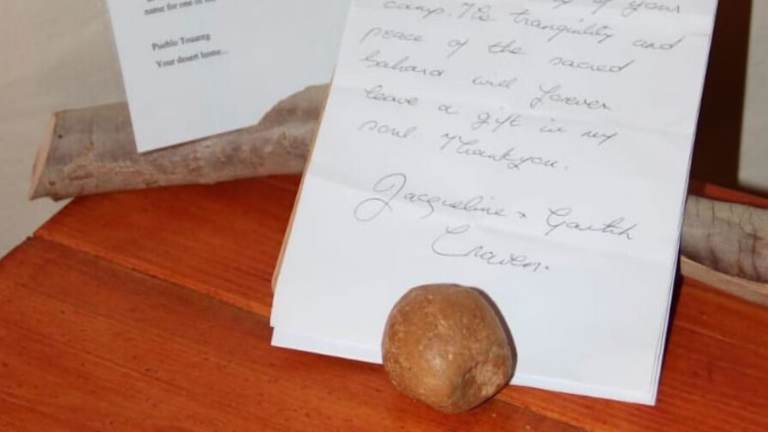 name for one of
Pueblo Touareg
Your desert home...
of your
camp. The tranquility and
peace of the sacred
Sahara will forever
leave a gift in my
soul. Thankyou.
Jacqueline + Gareth
Craven.